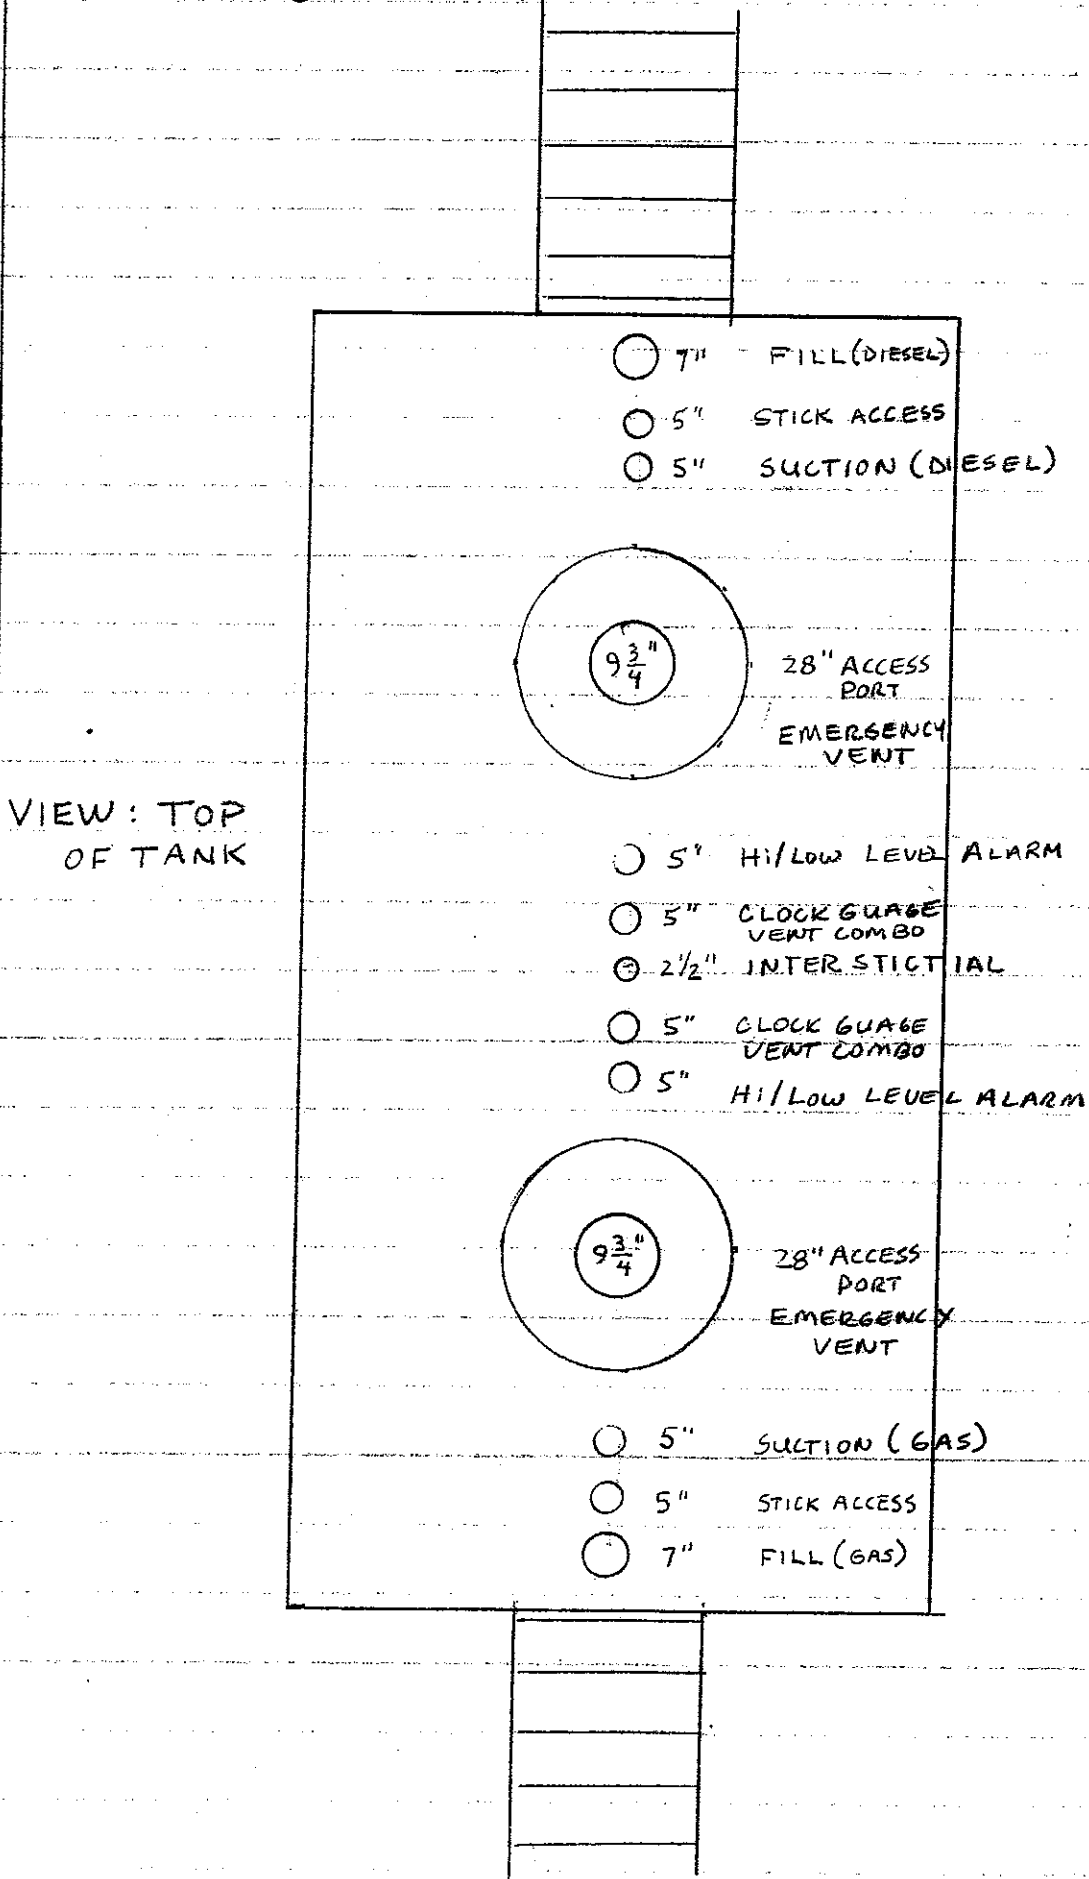 7" FILL (DIESEL)
5" STICK ACCESS
5" SUCTION (DIESEL)
9 3/4" 28" ACCESS
PORT
EMERGENCY
VENT
VIEW : TOP
OF TANK
5" Hi/LOW LEVEL ALARM
5" CLOCK GUAGE
VENT COMBO
2 1/2" INTERSTICTIAL
5" CLOCK GUAGE
VENT COMBO
5" Hi/LOW LEVEL ALARM
9 3/4" 28" ACCESS
PORT
EMERGENCY
VENT
5" SUCTION (GAS)
5" STICK ACCESS
7" FILL (GAS)